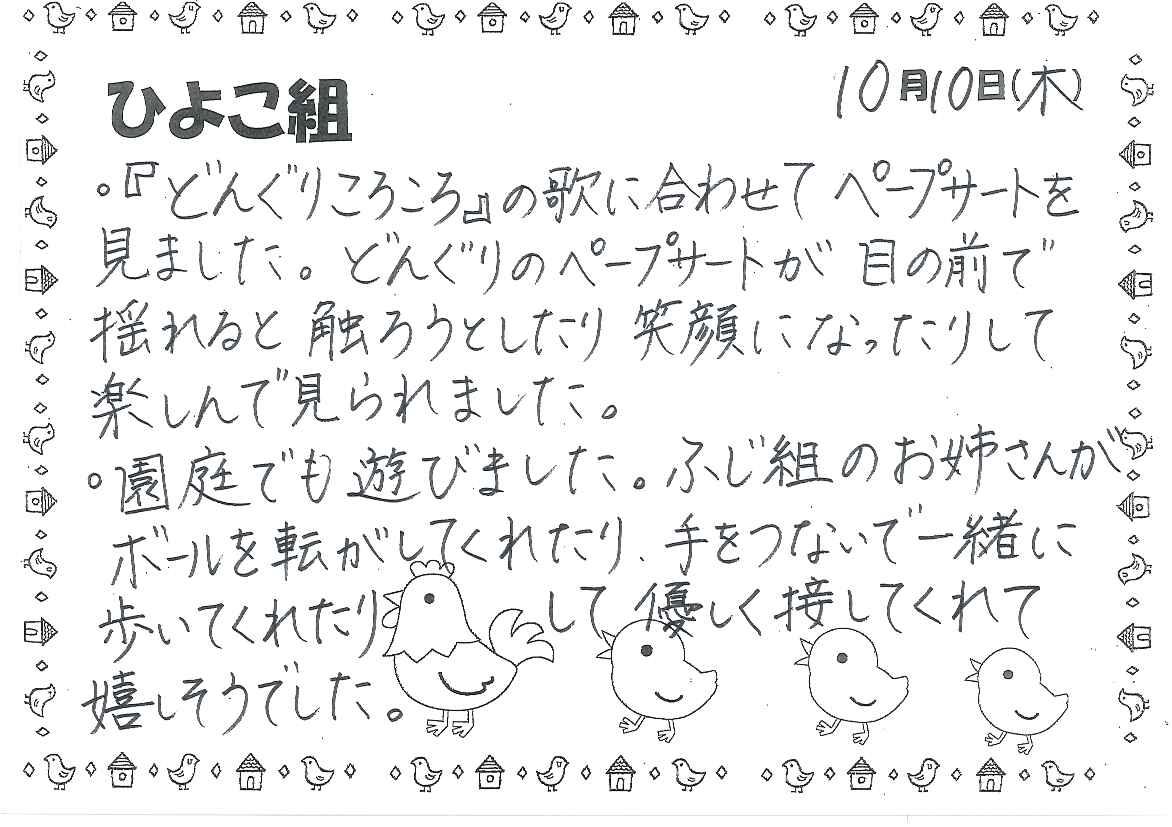 ひよこ組
10月10日(木)
。『どんぐりころころ』の歌に合わせて ペープサートを
見ました。どんぐりのペープサートが 目の前で
揺れると 触ろうとしたり 笑顔になったりして
楽しんで見られました。
。園庭でも遊びました。ふじ組のお姉さんが
ボールを転がしてくれたり、手をつないで一緒に
歩いてくれたりして 優しく接してくれて
嬉しそうでした。